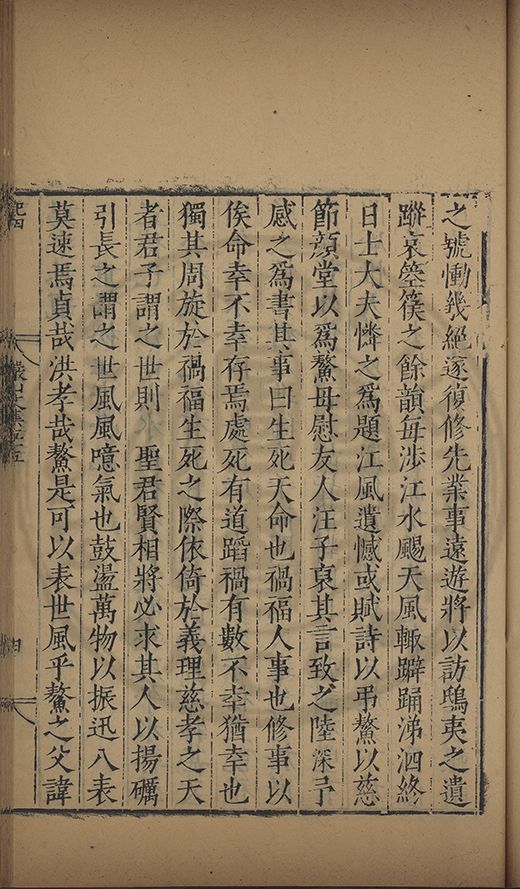 之號慟幾絕遂復修先業事遠遊將以訪鴟夷之遺
蹤哀箜篌之餘韻每涉江水颺天風輙躃踊涕泗終
日士大夫憐之爲題江風遺憾或賦詩以弔鰲以慈
節顏堂以爲鰲母慰友人汪子哀其言致之陸深予
感之爲書其事曰生死天命也禍福人事也修事以
俟命幸不幸存焉處死有道蹈禍有數不幸猶幸也
獨其周旋於禍福生死之際依倚於義理慈孝之天
者君子謂之世則 聖君賢相將必求其人以揚礪
引長之謂之世風風噫氣也鼓盪萬物以振迅八表
莫速焉貞哉洪孝哉鰲是可以表世風乎鰲之父諱